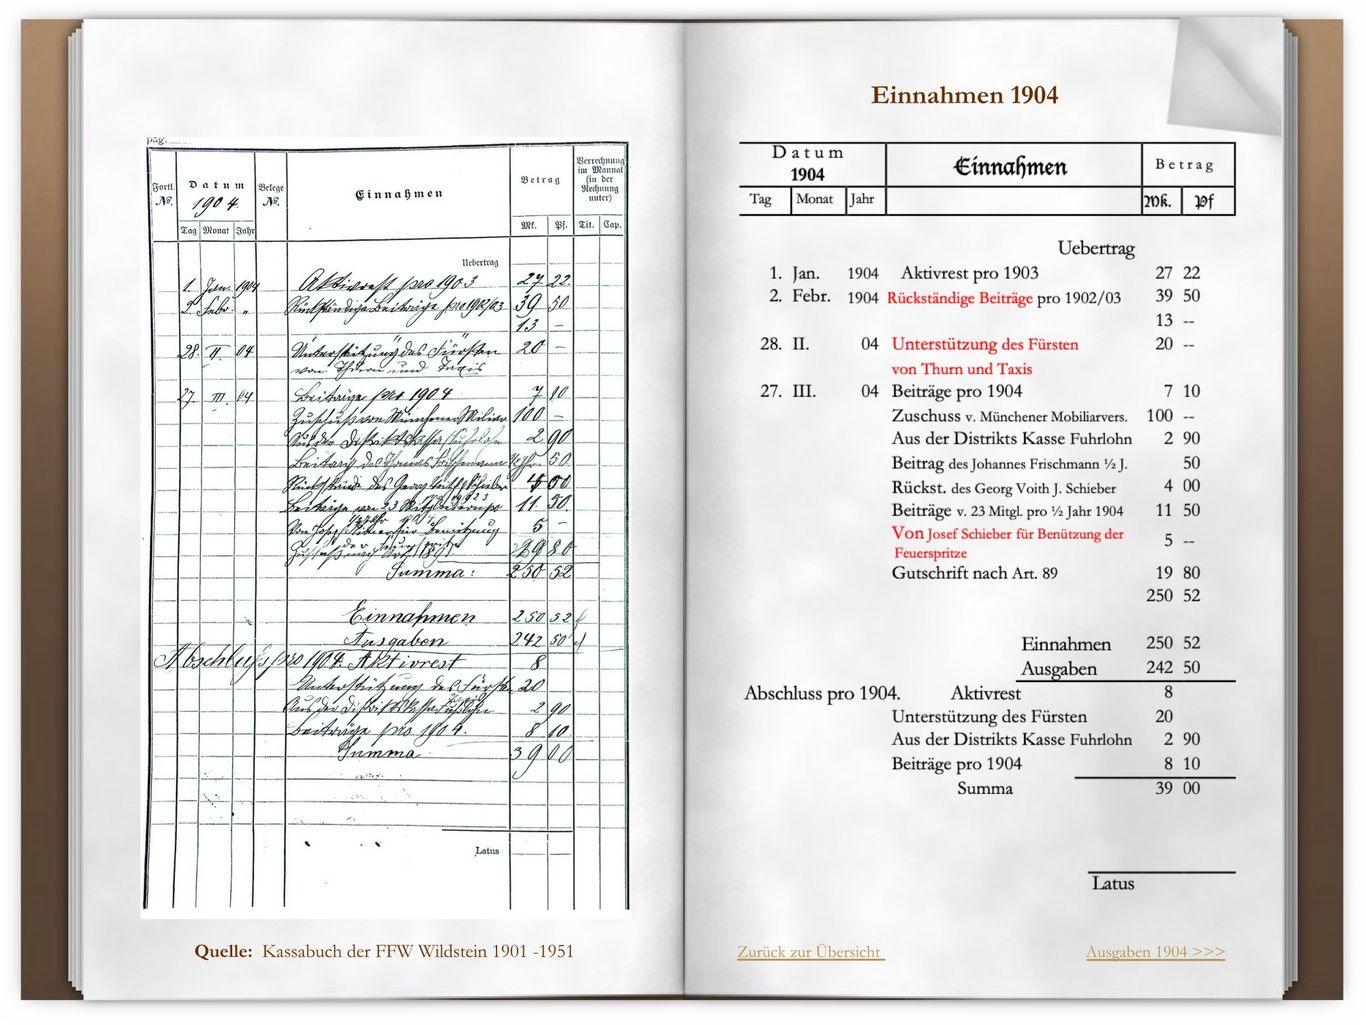 pag.
Fortl. No.
Datum
1904
Belege No.
Einnahmen
Betrag
Verrechnung im Manual (in der Rechnung unter)
Tag Monat Jahr
Mk. Pf. Tit. Cap.
Uebertrag
1. Jan. 1904 Aktivrest pro 1903 27 22
2. Febr. " Rückständige Beiträge pro 1902/03 39 50
13 –
28. II. 04 Unterstützung des Fürsten 20 –
von Thurn und Taxis
27. III. 04 Beiträge pro 1904 7 10
Zuschuß von Münchener 100 –
Aus der Distriktskassa Fuhrlohn 2 90
Beitrag des Frischmann 50
Rückstände des Georg Voith Schieber 4 00
Beiträge von 23 Mitgliedern pro 11 50
Von Josef Schieber für Benützung 5 –
der Feuerspritze
80
Summa: 250 52
Einnahmen 250 52
Ausgaben 242 50
Abschluß pro 1904. Aktivrest 8
Unterstützung des Fürsten 20
Aus der Distriktskassa Fuhrlohn 2 90
Beiträge pro 1904. 8 10
Summa 39 00
Latus
Quelle: Kassabuch der FFW Wildstein 1901 -1951
Einnahmen 1904
Datum
1904
Einnahmen
Betrag
Tag Monat Jahr Mk. Pf
Uebertrag
1. Jan. 1904 Aktivrest pro 1903 27 22
2. Febr. 1904 Rückständige Beiträge pro 1902/03 39 50
13 --
28. II. 04 Unterstützung des Fürsten 20 --
von Thurn und Taxis
27. III. 04 Beiträge pro 1904 7 10
Zuschuss v. Münchener Mobiliarvers. 100 --
Aus der Distrikts Kasse Fuhrlohn 2 90
Beitrag des Johannes Frischmann ½ J. 50
Rückst. des Georg Voith J. Schieber 4 00
Beiträge v. 23 Mitgl. pro ½ Jahr 1904 11 50
Von Josef Schieber für Benützung der
Feuerspritze 5 --
Gutschrift nach Art. 89 19 80
250 52
Einnahmen 250 52
Ausgaben 242 50
Abschluss pro 1904. Aktivrest 8
Unterstützung des Fürsten 20
Aus der Distrikts Kasse Fuhrlohn 2 90
Beiträge pro 1904 8 10
Summa 39 00
Latus
Zurück zur Übersicht
Ausgaben 1904 >>>